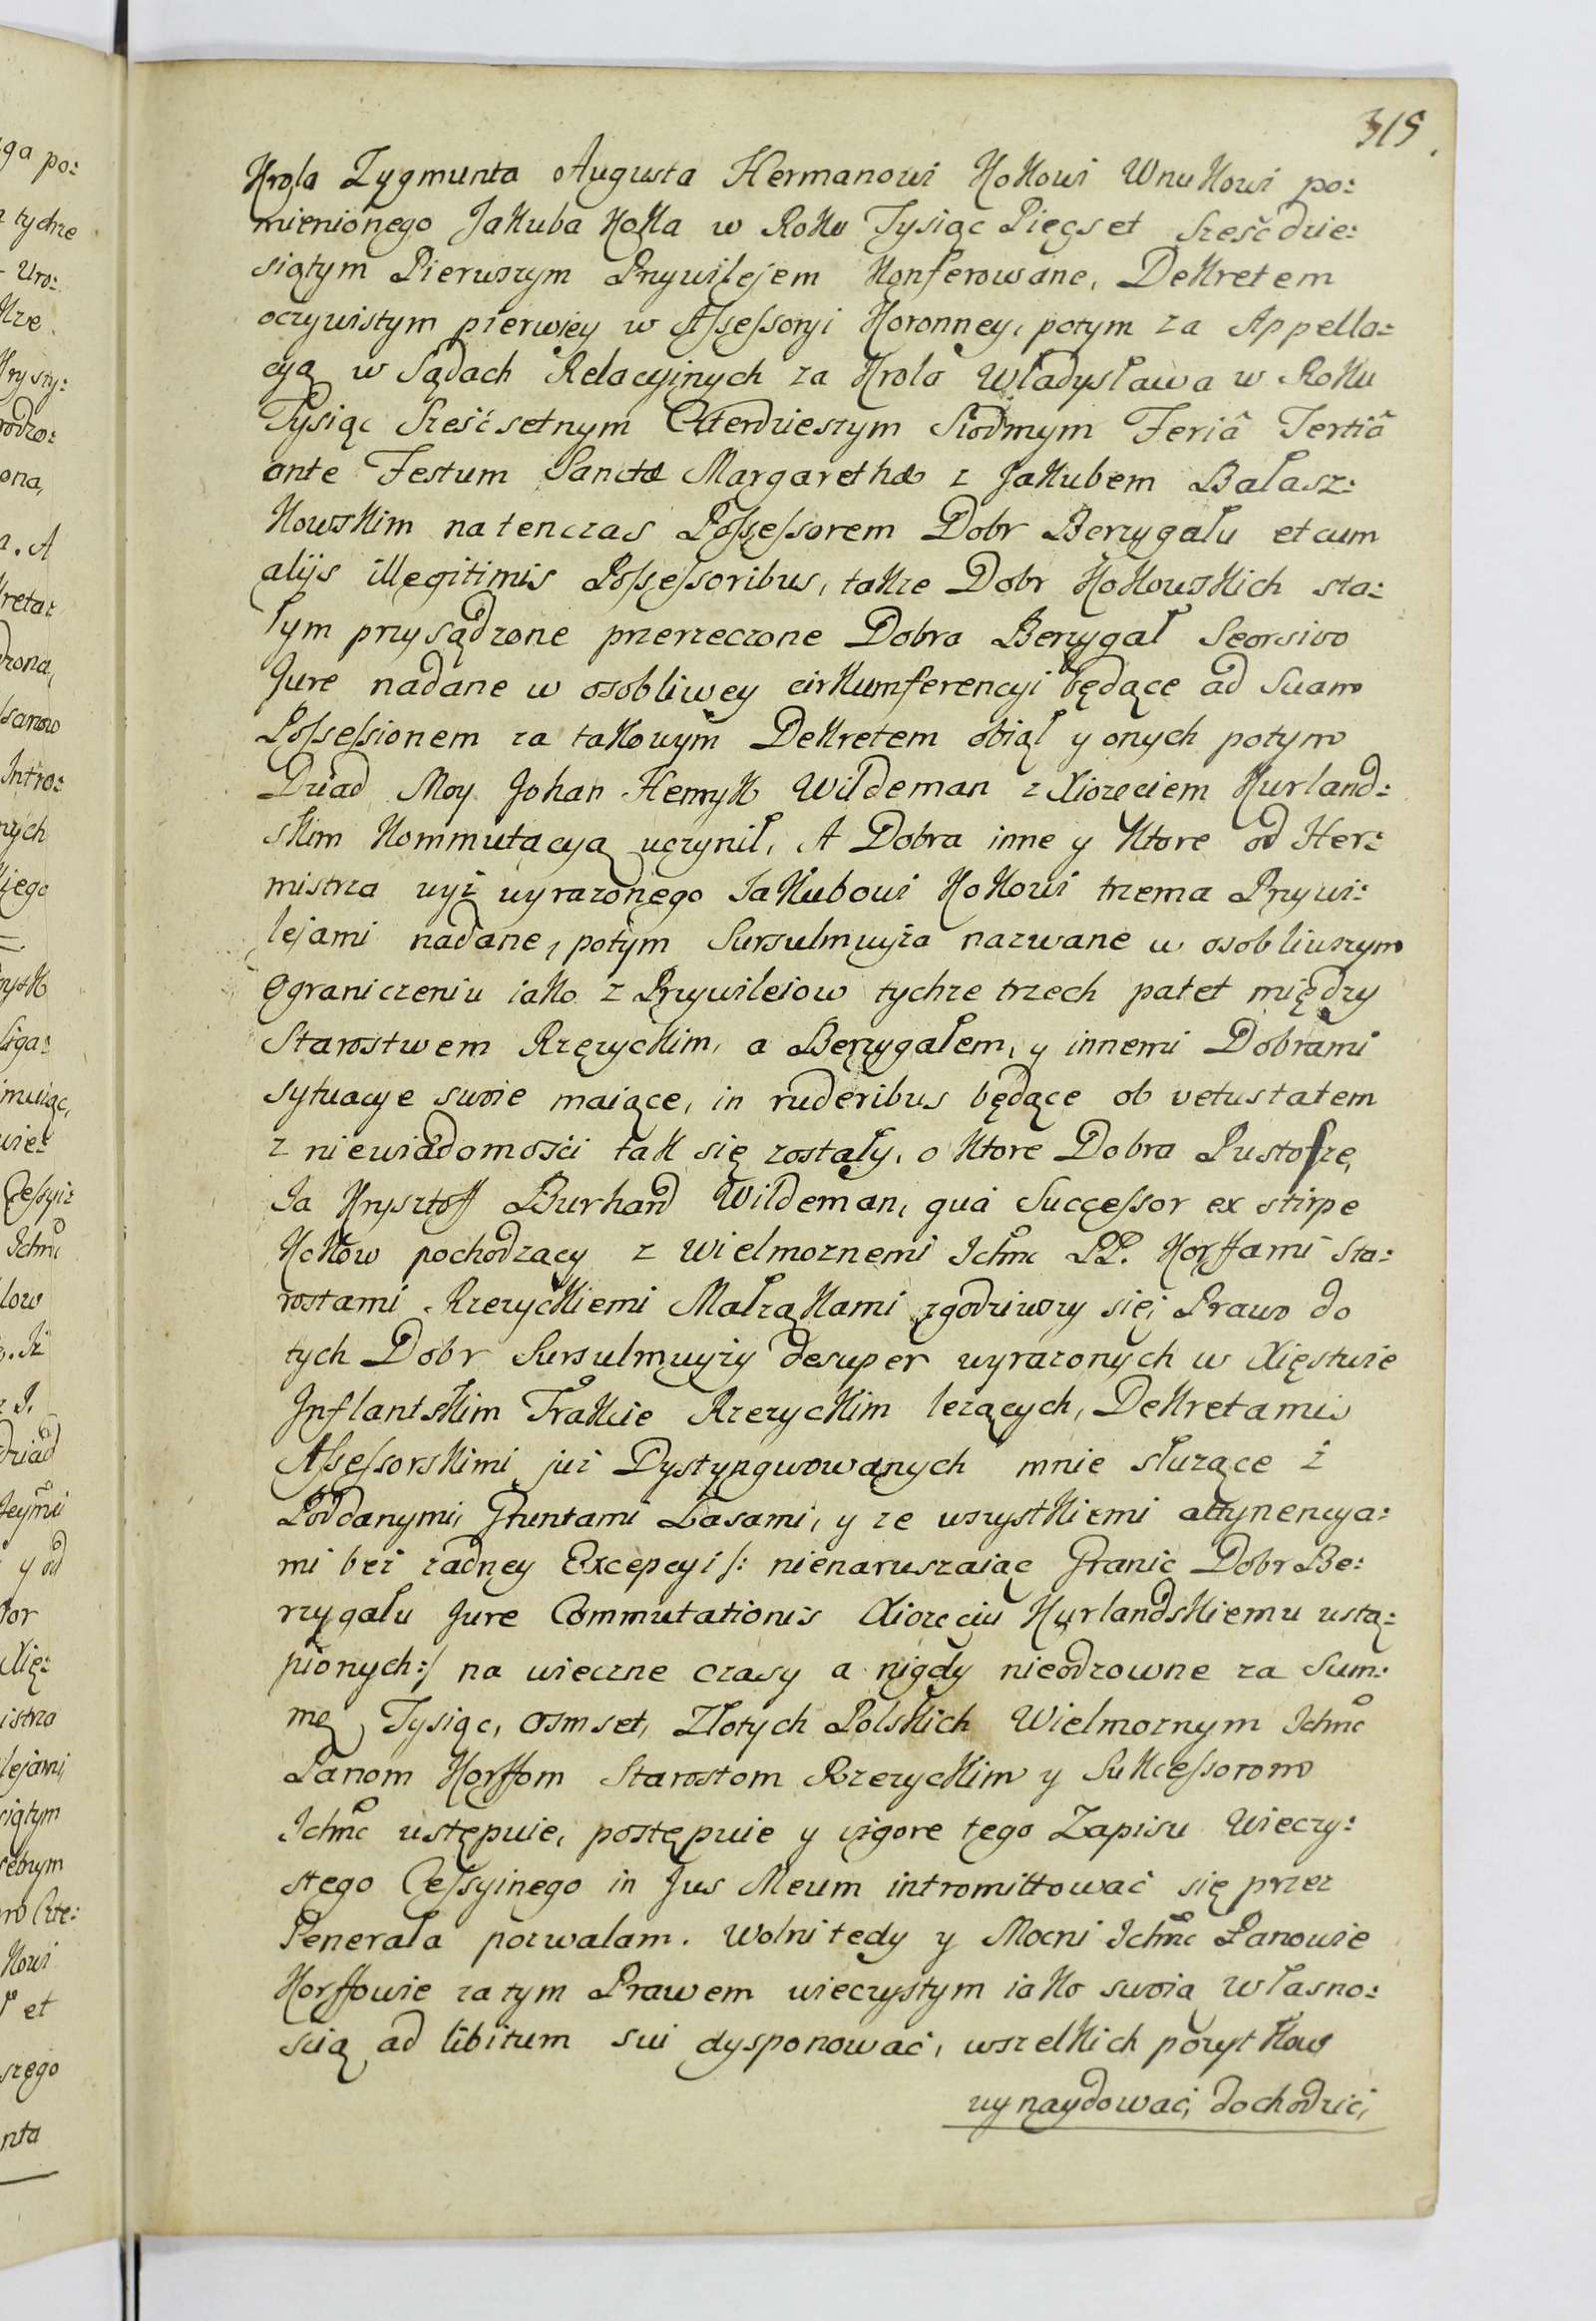 315.
Krola Zygmunta Augusta Hermanowi Hokowi Wnukowi po:
mienionego Jakuba Hoka w Roku Tysiąc Pięcset Sześcdzie:
siątym Pierwszym Przywilejem Konferowane, Dekretem
oczywistym pierwiey w Assessoryi Koronney, potym za Appella:
cyą w Sądach Relacyinych za Krola Władysława w Roku
Tysiąc Sześćsetnym Czterdziestym Siodmym Feriâ Tertiâ
ante Festum Sanctæ Margarethæ z Jakubem Bałasz:
kowskim natenczas Possessorem Dobr Berzygału et cum
alijs illegitimis Possessoribus, także Dobr Hokowskich sta:
łym przysądzone przerzeczone Dobra Berzygał Seorsivo
Jure nadane w osobliwey cirkumferencyi będące ad Suam
Possessionem za takowym Dekretem obiął y onych potym
Dziad Moy Johan Henryk Wildeman z Xiozęciem Kurland:
skim Kommutacyą uczynił, A Dobra inne y ktore od Her:
mistrza wyż wyrazonego Jakubowi Hokowi trzema Przywi:
lejami nadane, potym Sursulmuyża nazwane w osobliwszym
Ograniczeniu iako z Przywileiow tychze trzech patet między
Starostwem Rzęzyckim, a Berzygałem, y innemi Dobrami
sytuacye swoie maiące, in ruderibus będące ob vetustatem
z niewiadomości tak się zostały, o ktore Dobra Pustosze,
Ja Krysztoff Burhard Wildeman, qua Successor ex stirpe
Hokow pochodzący z Wielmoznemi Ichmc PP. Korffami Sta:
rostami Rzezyckiemi Małząkami zgodziwszy się, Prawo do
tych Dobr Sursulmuyzy desuper wyrazonych w Xięstwie
Inflantskim Trakcie Rzezyckim lezących, Dekretami
Assessorskimi już Dystyngwowanych mnie słuzące z
Poddanymi, Gruntami Lasami, y ze wszystkiemi attynencya:
mi bez zadney Excepcyi /: nienaruszaiąc Granic Dobr Be:
rzygału Jure Commutationis Xiozęciu Kurlandskiemu ustą:
pionych:/ na wieczne czasy a nigdy nieodzowne za Sum:
mę Tysiąc, Osmset, Złotych Polskich Wielmoznym Ichmc
Panom Korffom Starostom Rzezyckim y Sukcessorom
Ichmc ustępuie, postępuie y vigore tego Zapisu Wieczy:
stego Cessyinego in Jus Meum intromittować się przez
Generała pozwalam. Wolni tedy y Mocni Ichmc Panowie
Korffowie za tym Prawem wieczystym iako swoią własno:
scią ad libitum sui dysponować, wszelkich pożytkow
wynaydować, dochodzić,